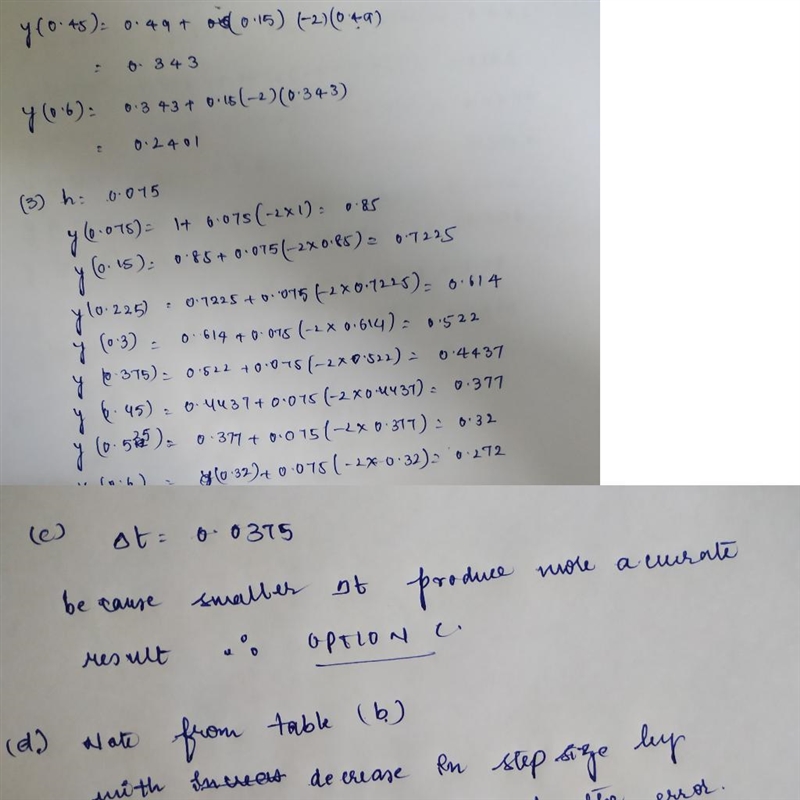 y(0.45)= 0.49+ (0.15) (-2)(0.49)
= 0.343
y(0.6)= 0.343+0.15(-2)(0.343)
= 0.2401
(3) h= 0.075
y(0.075)= 1+ 0.075(-2×1)= 0.85
y(0.15)= 0.85+0.075(-2×0.85)= 0.7225
y(0.225) = 0.7225+0.075(-2×0.7225)= 0.614
y(0.3) = 0.614+0.075(-2×0.614)= 0.522
y(0.375)= 0.522+0.075(-2×0.522)= 0.4437
y(0.45)= 0.4437+0.075(-2×0.4437)= 0.377
y(0.525)= 0.377+0.075(-2×0.377)= 0.32
y(0.6) = y(0.32)+0.075(-2×0.32)= 0.272
(c) Δt= 0.0375
because smaller Δt produce more accurate
result ∴ OPTION C.
(d.) Note from table (b.)
with decrease in step size by
the error.